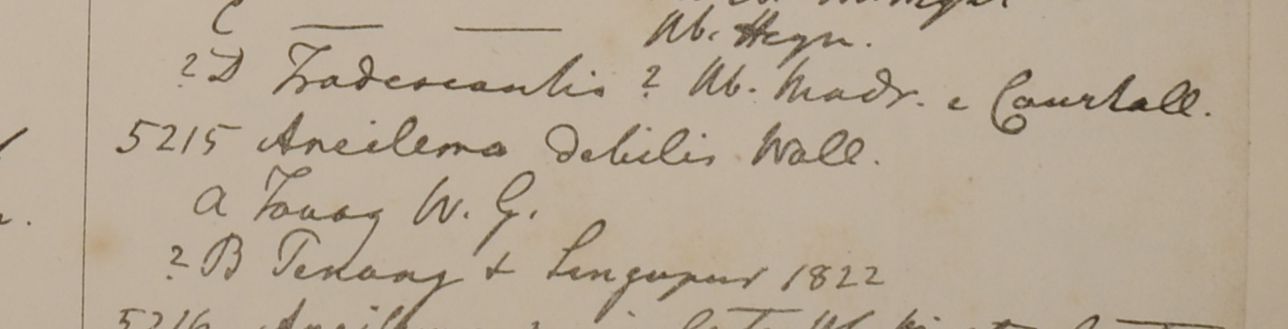 C — — Hb. Heyn.
? D Tradescantia ? Hb. Madr. e Courtall.
5215 Aneilema debilis Wall.
a Tavoy W. G.
? B Penang & Singapur 1822
5216